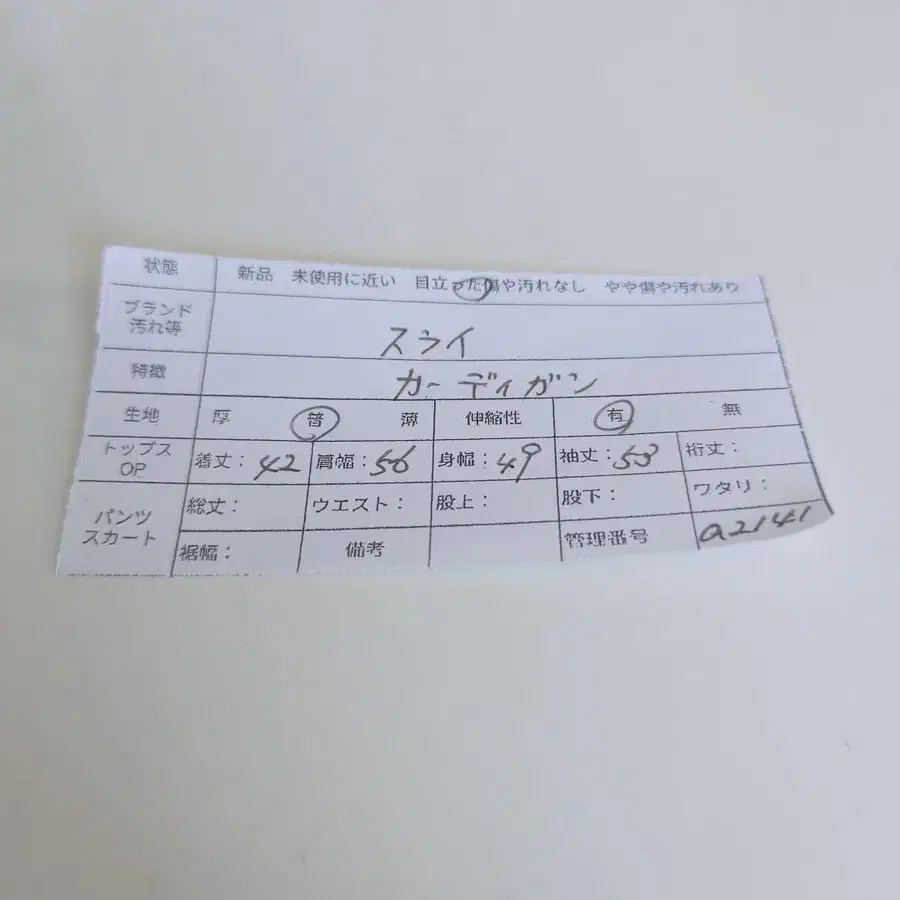 状態 新品 未使用に近い 目立った傷や汚れなし やや傷や汚れあり
ブランド
汚れ等 スライ
特徴 カーディガン
生地 厚 普 薄 伸縮性 有 無
トップス
OP 着丈：42 肩幅：56 身幅：49 袖丈：53 裄丈：
パンツ
スカート 総丈： ウエスト： 股上： 股下： ワタリ：
裾幅： 備考 管理番号 a2141